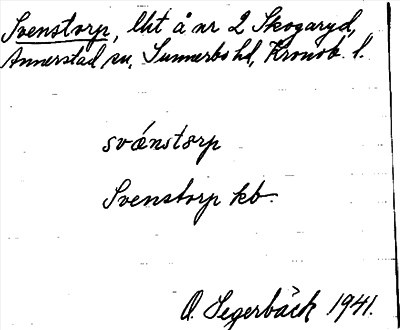 Svenstorp, lht å nr 2 Skogaryd,
Annerstad sn, Sunnerbo hd, Kronob. l.
svænstorp
Svenstorp kb.
O. Segerbäck 1941.